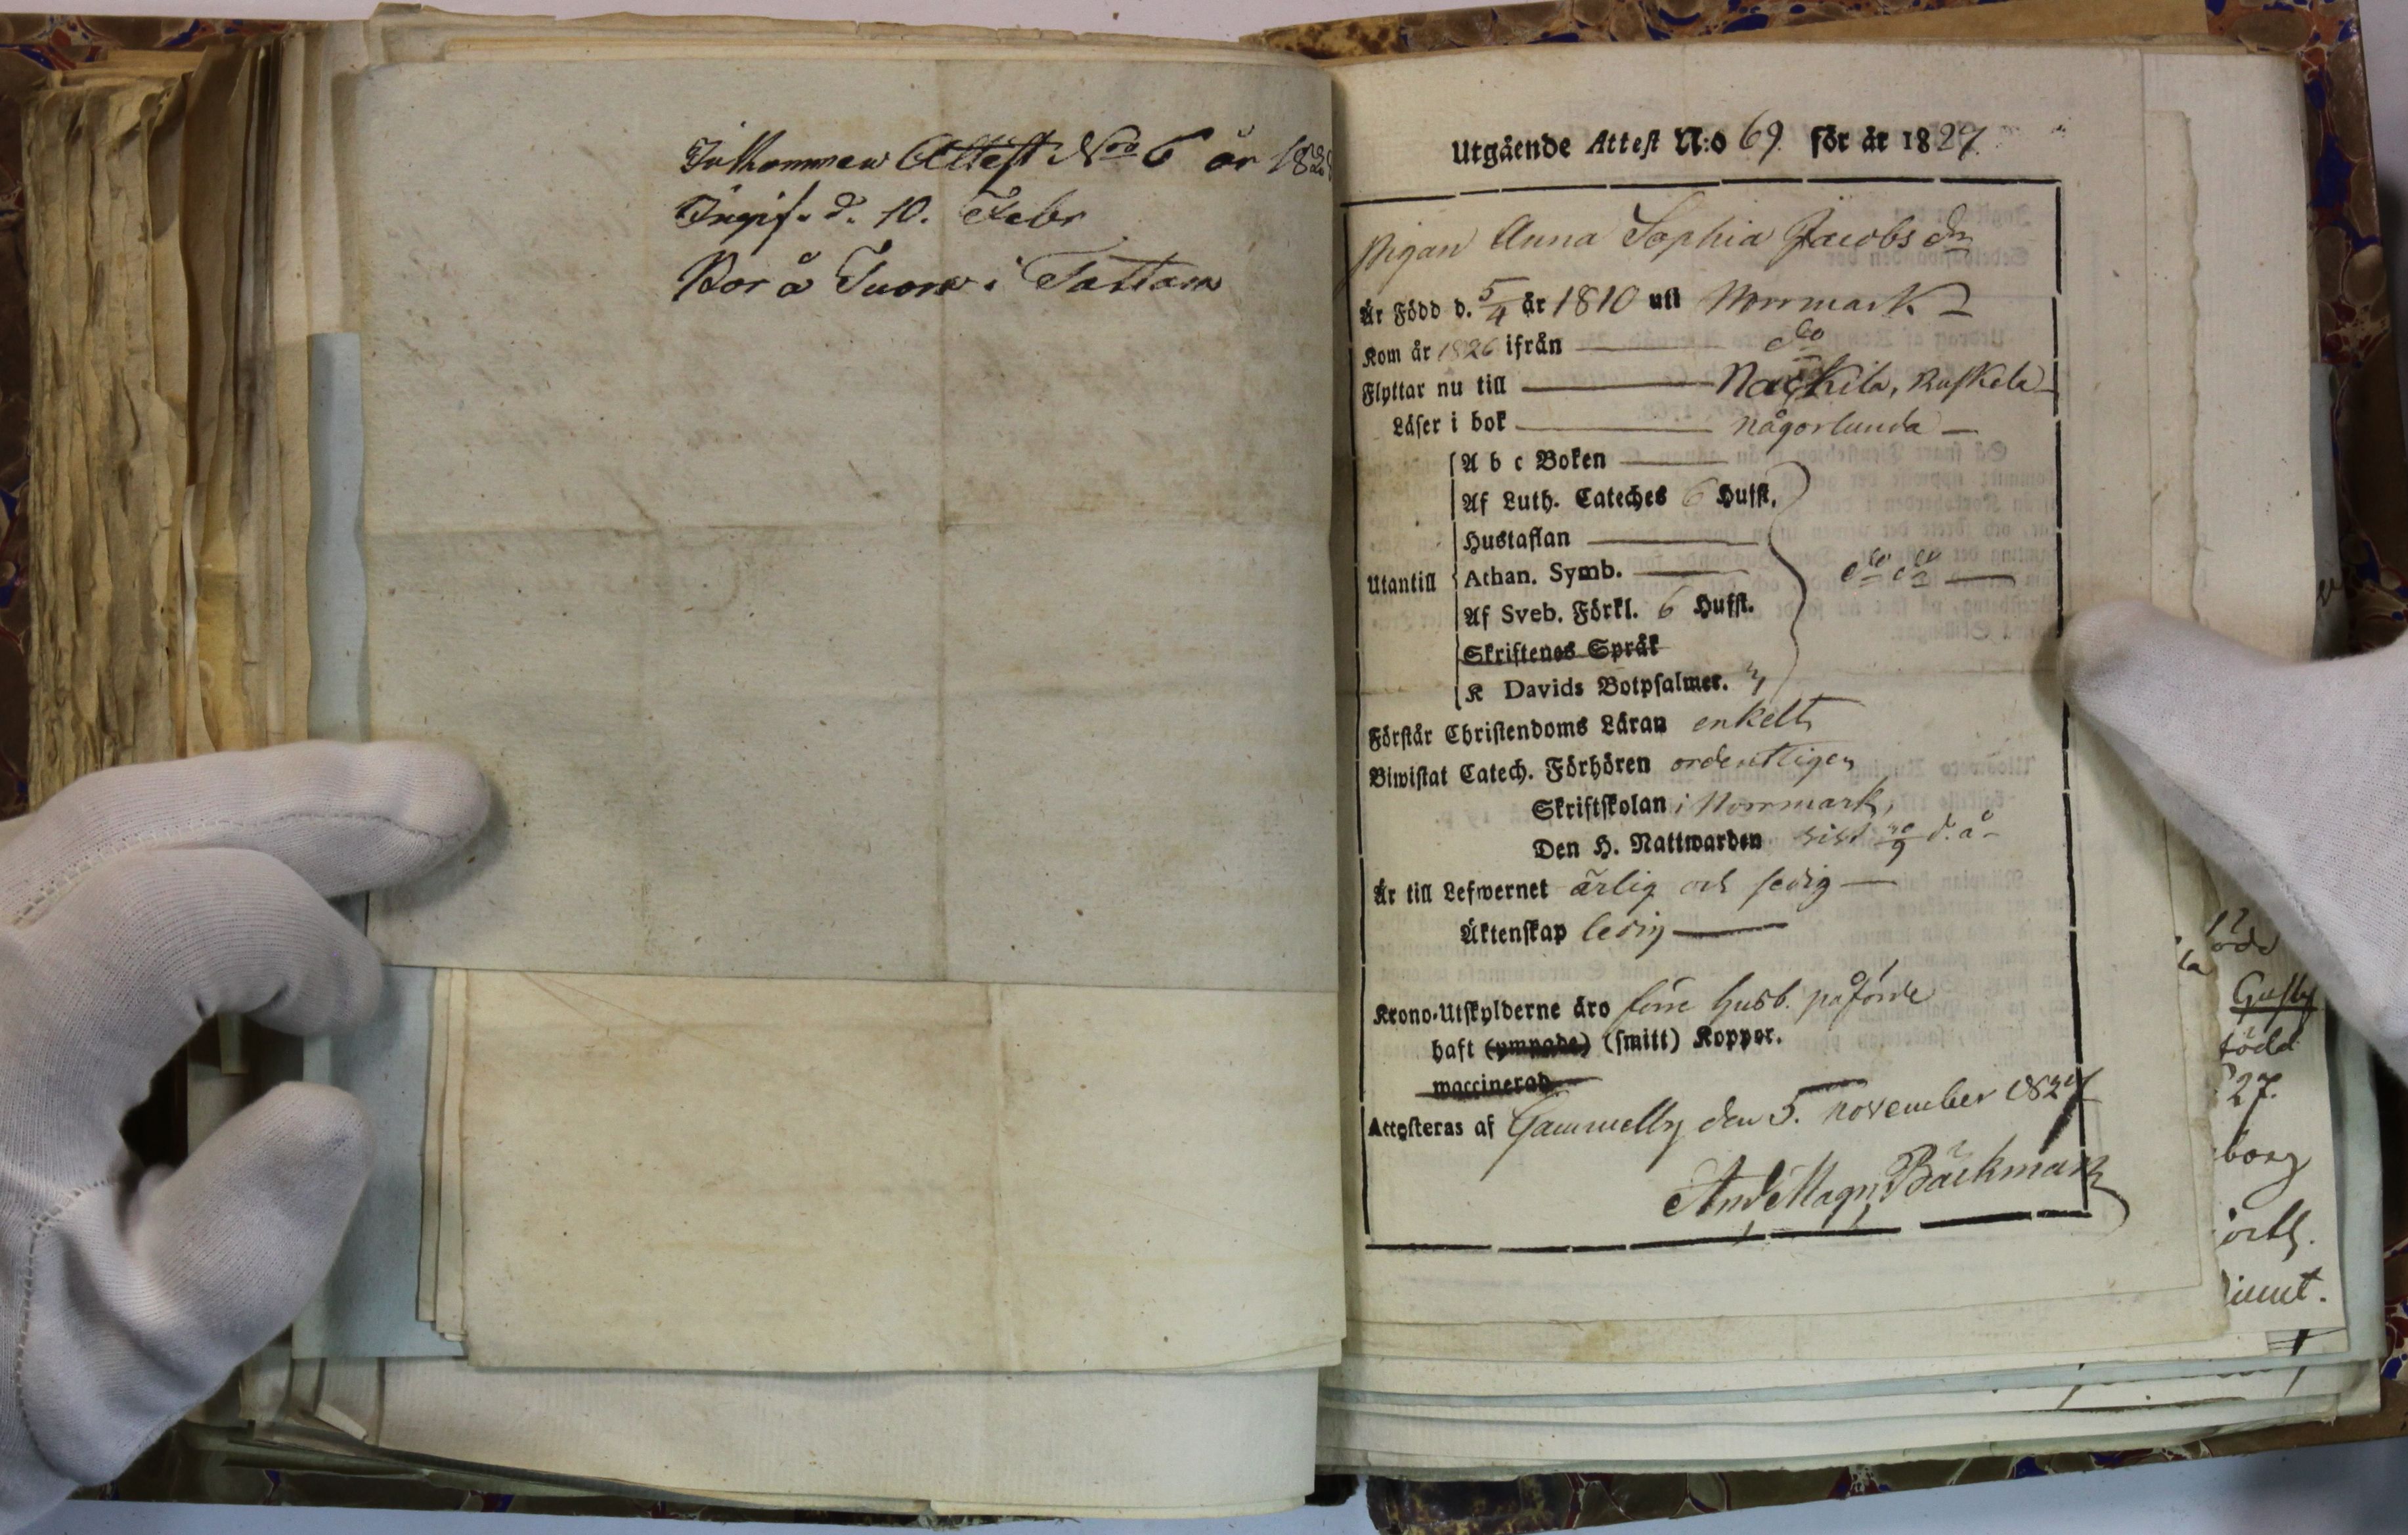 Inkommen Attest No 6 år 182
Ingif. d. 10. Febr
Bor å i Tattara
Utgående Attest N:o 69 för år 1827.
Pigan Anna Sophia Jacobs dr
Är Född d. 5/4 år 1810 uti Norrmark
Kom år 1826 ifrån do
Flyttar nu till Nackila, Ruskela
Läser i bok någorlunda
A b c Boken
Af Luth. Cateches 6 Hufst.
Hustaflan
Utantill Athan. Symb. do do
Af Sveb. Förkl. 6 Hufst.
Skriftenes Språk
K Davids Botpsalmer.
Förstår Christendoms Läran enkelt
Biwistat Catech. Förhören ordentligen
Skriftskolan i Norrmark,
Den H. Nattwarden sist d. å
Är till Lefwernet ärlig och sedig
Äktenskap ledig
Krono-Utskylderne äro förre husb. påförde
haft (ympade) (smitt) Koppor.
waccinerad
Attesteras af Gammelby den 5. november 1827
And Magn Bäckman
öde
la
Gustaf
född
27.
borg